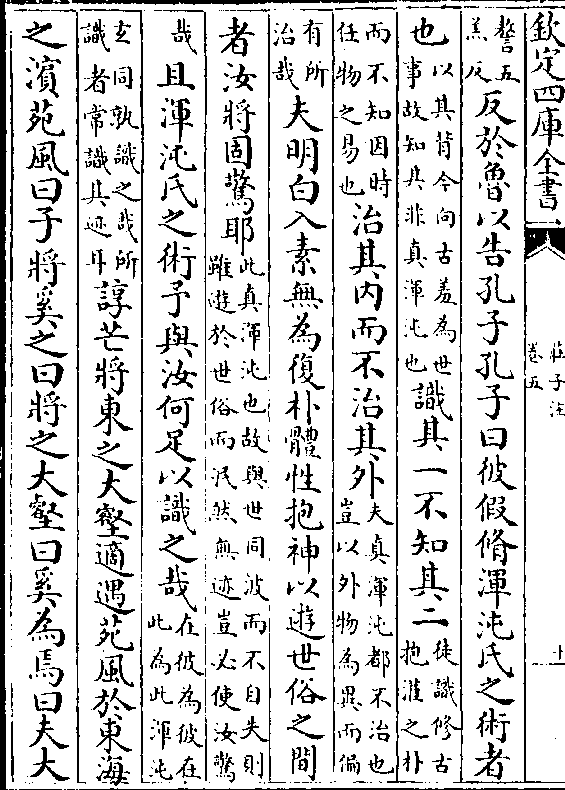 欽定四庫全書
莊子注
卷五
十
謷五
羔反
反於魯以告孔子孔子曰彼假脩渾沌氏之術者
也
以其背今向古羞為世
事故知其非真渾沌也
識其一不知其二
徒識修古
抱灌之朴
而不知因時
任物之易也
治其内而不治其外
夫真渾沌都不治也
豈以外物為異而偏
有所
治哉
夫明白入素無為復朴體性抱神以遊世俗之間
者汝將固驚耶
此真渾沌也故與世同波而不自失則
雖遊於世俗而泯然無迹豈必使汝驚
哉
且渾沌氏之術予與汝何足以識之哉
在彼為彼在
此為此渾沌
玄同孰識之哉所
識者常識其迹耳
諄芒將東之大壑適遇苑風於東海
之濱苑風曰子將奚之曰將之大壑曰奚為焉曰夫大